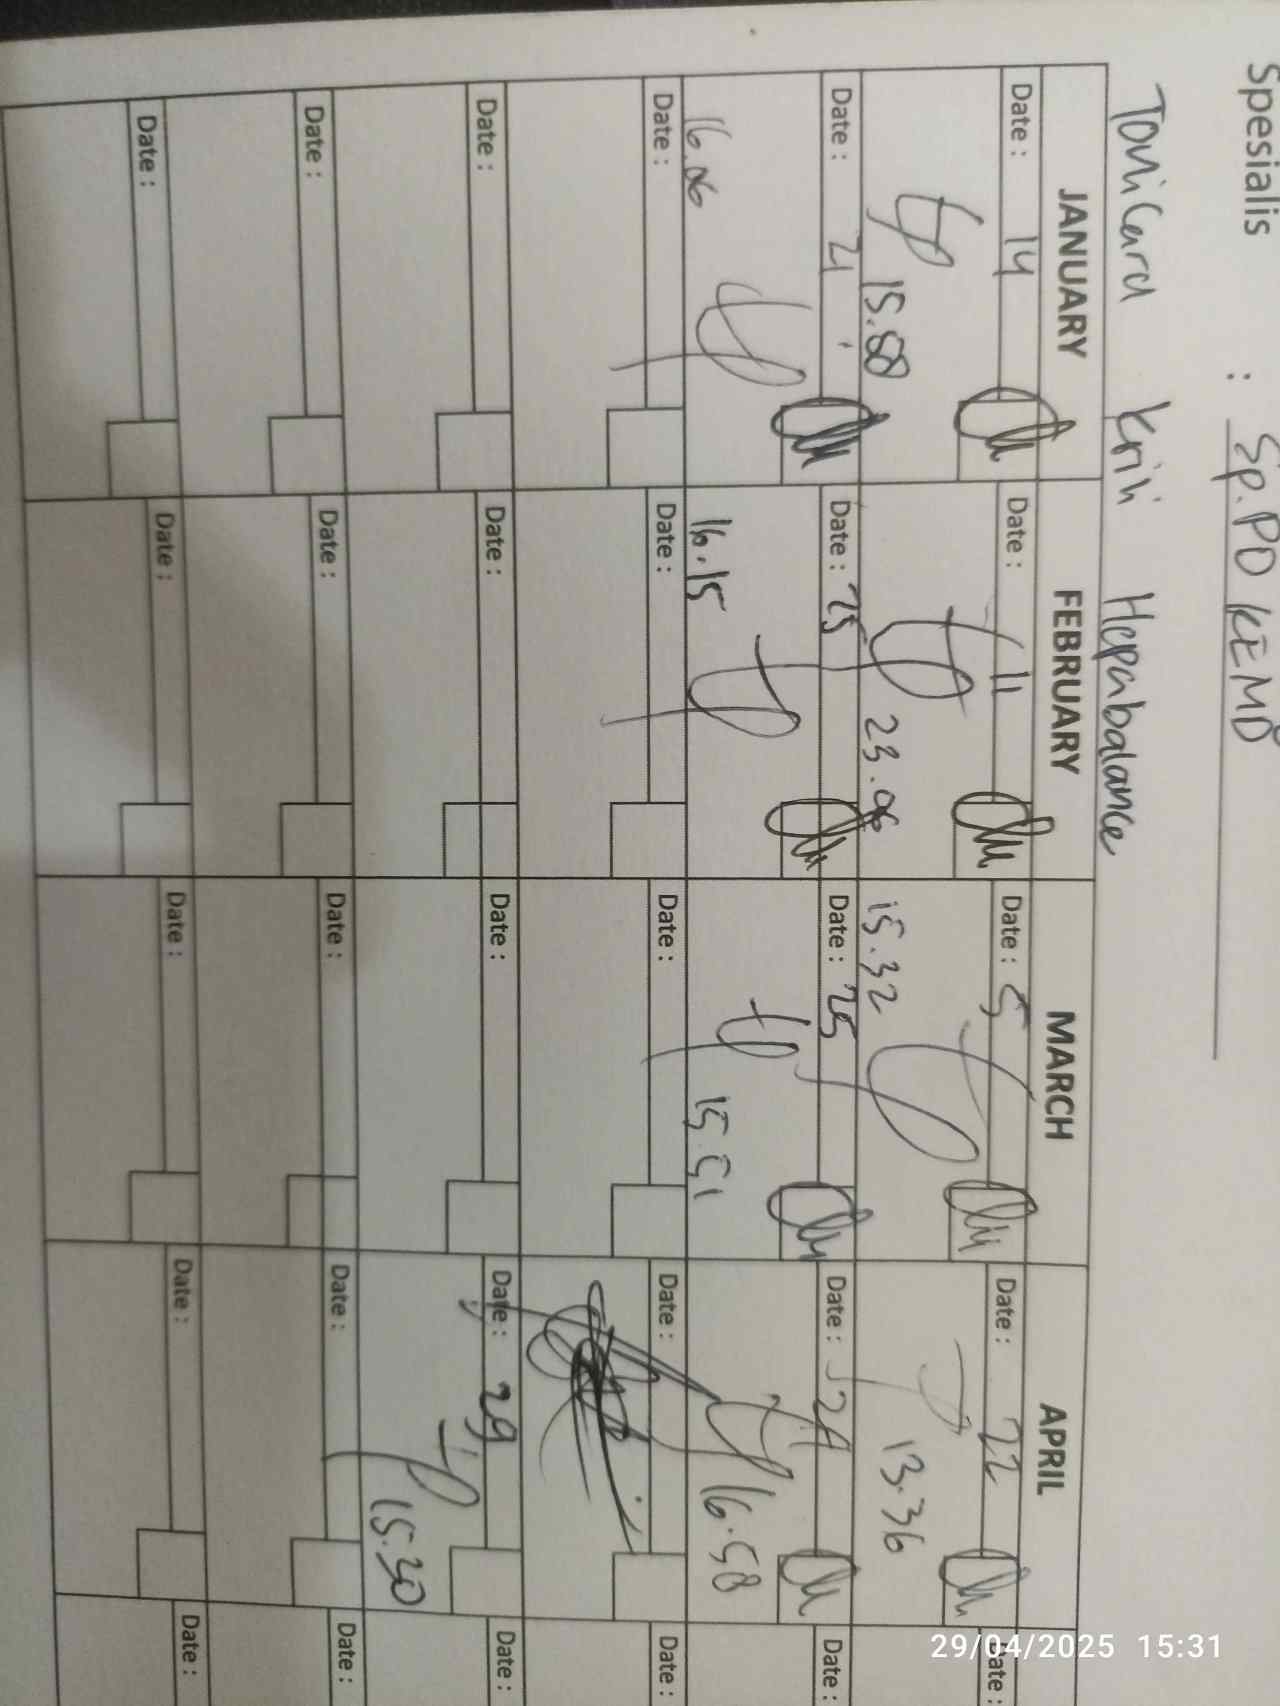 Spesialis : Sp.PD KEMD
Tonicard Krili Hepabalance
JANUARY FEBRUARY MARCH APRIL
Date : 14 Date : 11 Date : 5 Date : 22 Date :
15.58 23.06 15.32 13.36
Date : 21 Date : 25 Date : 25 Date : 24 Date :
16.06 16.15 15.51 16.58
Date : Date : Date : Date : Date :
Date : Date : Date : Date : 29 Date :
15.30
Date : Date : Date : Date : Date :
Date : Date : Date : Date : Date :
29/04/2025 15:31